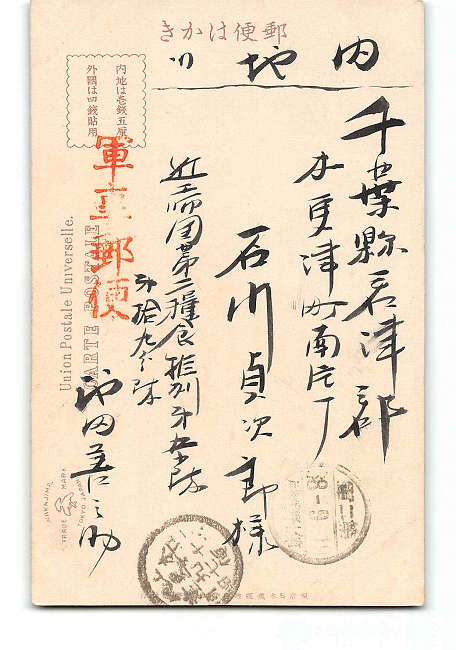 郵便はかき
内地
千葉縣君津郡
木更津町南片丁
石川貞次郎様
近エ師団第二糧食縦列第五小隊
第拾九分隊
池田善之助
軍事郵便
内地は壱銭五厘
外國は四銭貼用
Union Postale Universelle.
CARTE POSTALE
NAKAJIMA
TRADE MARK
TOKYO